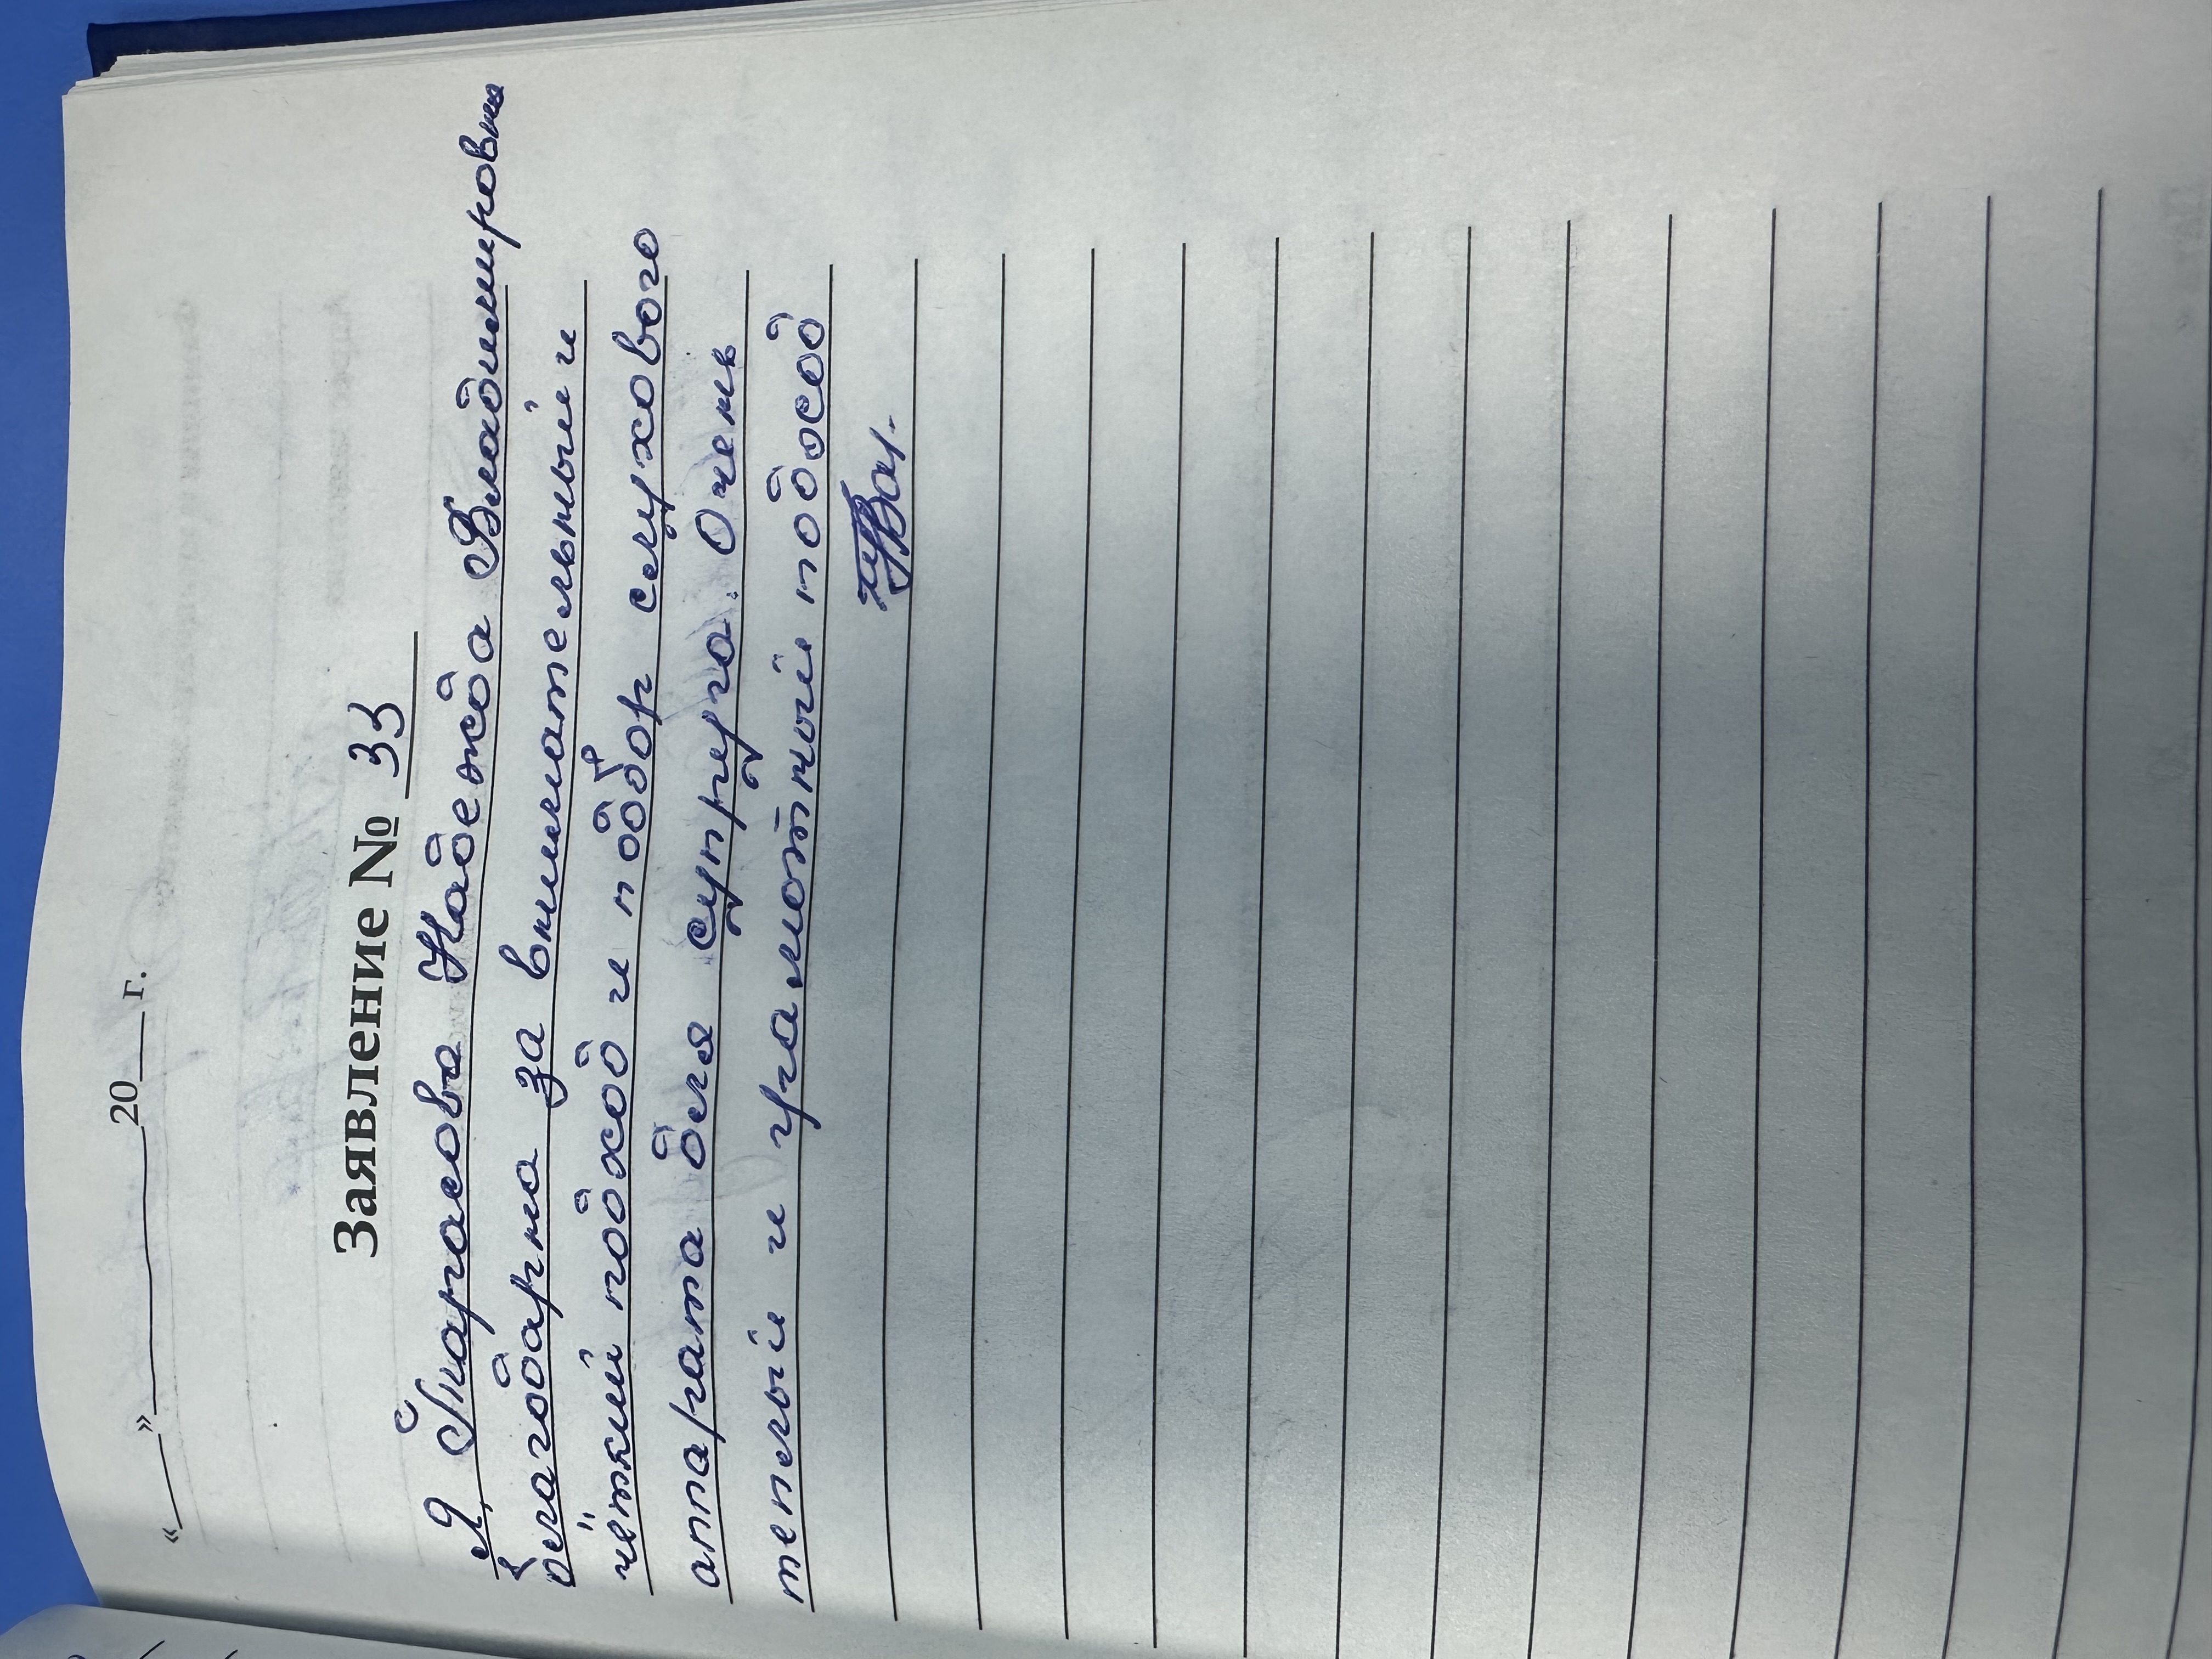 «___»__________20___г.
Заявление № 33
Я, Тарасова Надежда Владимировна
благодарна за внимательный и
чёткий подход и подбор слухового
аппарата для супруга. Очень
теплый и грамотный подход